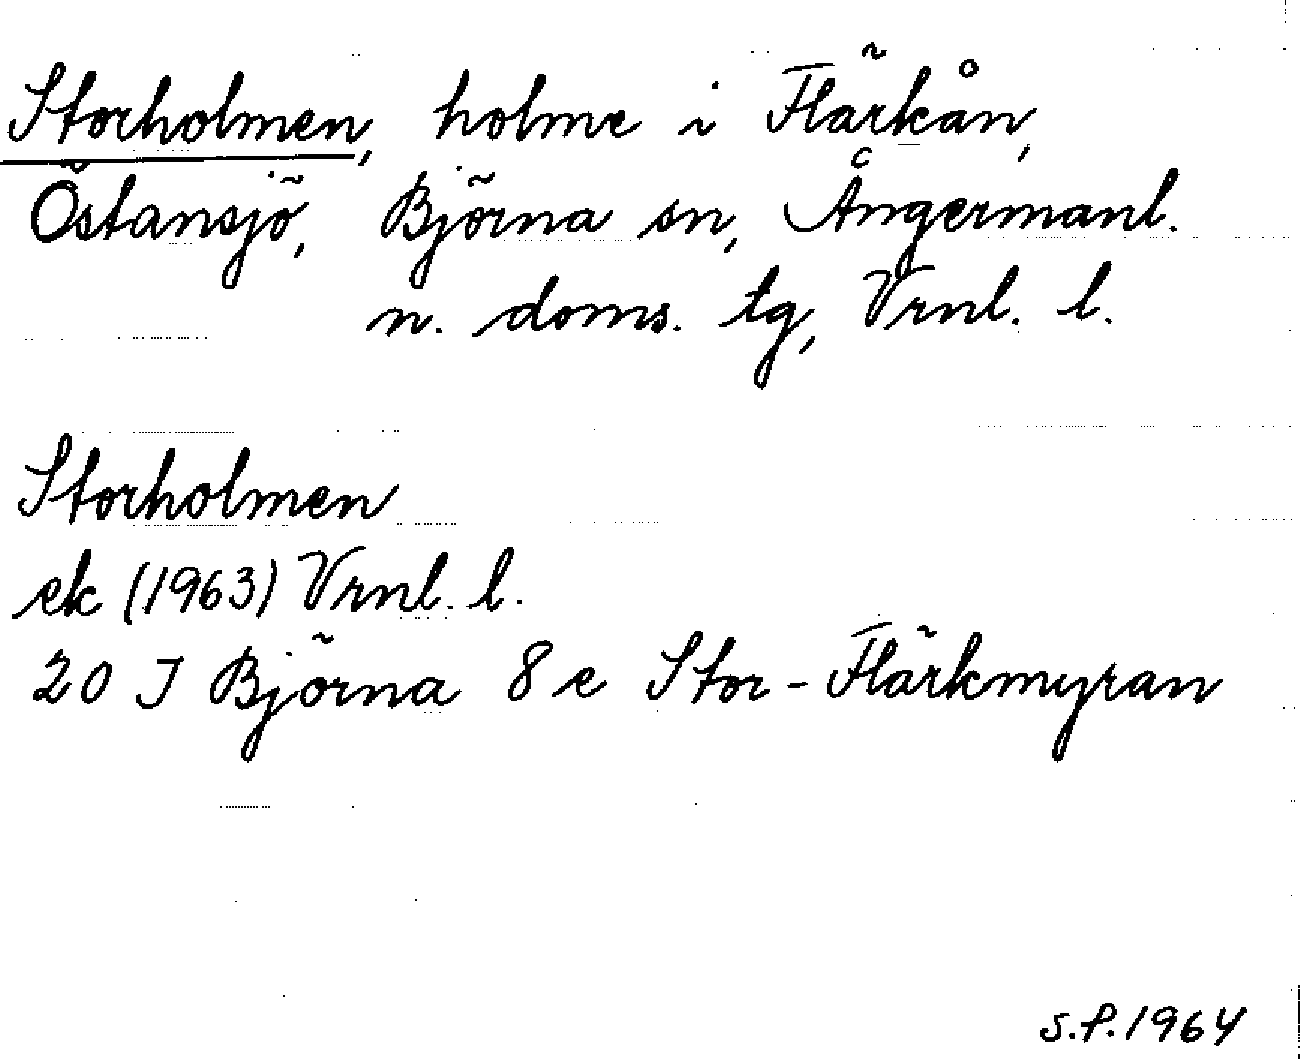 Storholmen, holme i Flärkån,
Östansjö, Björna sn, Ångermanl.
n. doms. tg, Vrnl. l.
Storholmen
ek (1963) Vrnl. l.
20 J Björna 8 e Stor-Flärkmyran
S.P. 1964